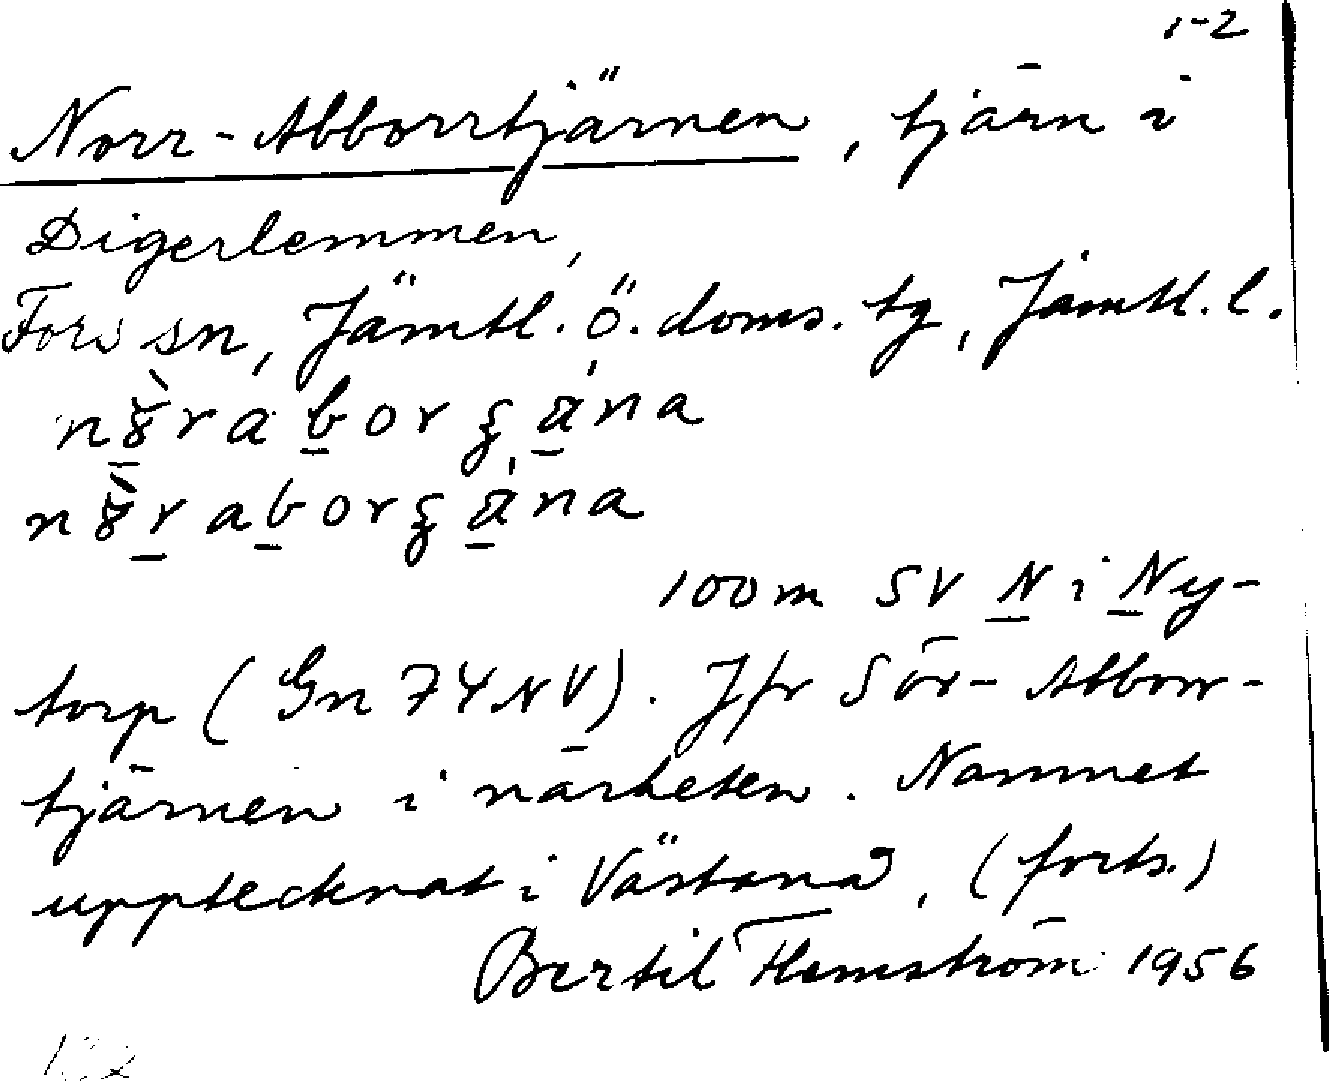 1-2
Norr-Abborrtjärnen, tjärn i
Digerlemmen,
Fors sn, Jämtl. ö. doms. tg, Jämtl. l.
100 m SV N i Ny-
torp (Gn 74 NV). Jfr Sör-Abborr-
tjärnen i närheten. Namnet
upptecknat i Västanå, (forts.)
Bertil Flemström 1956